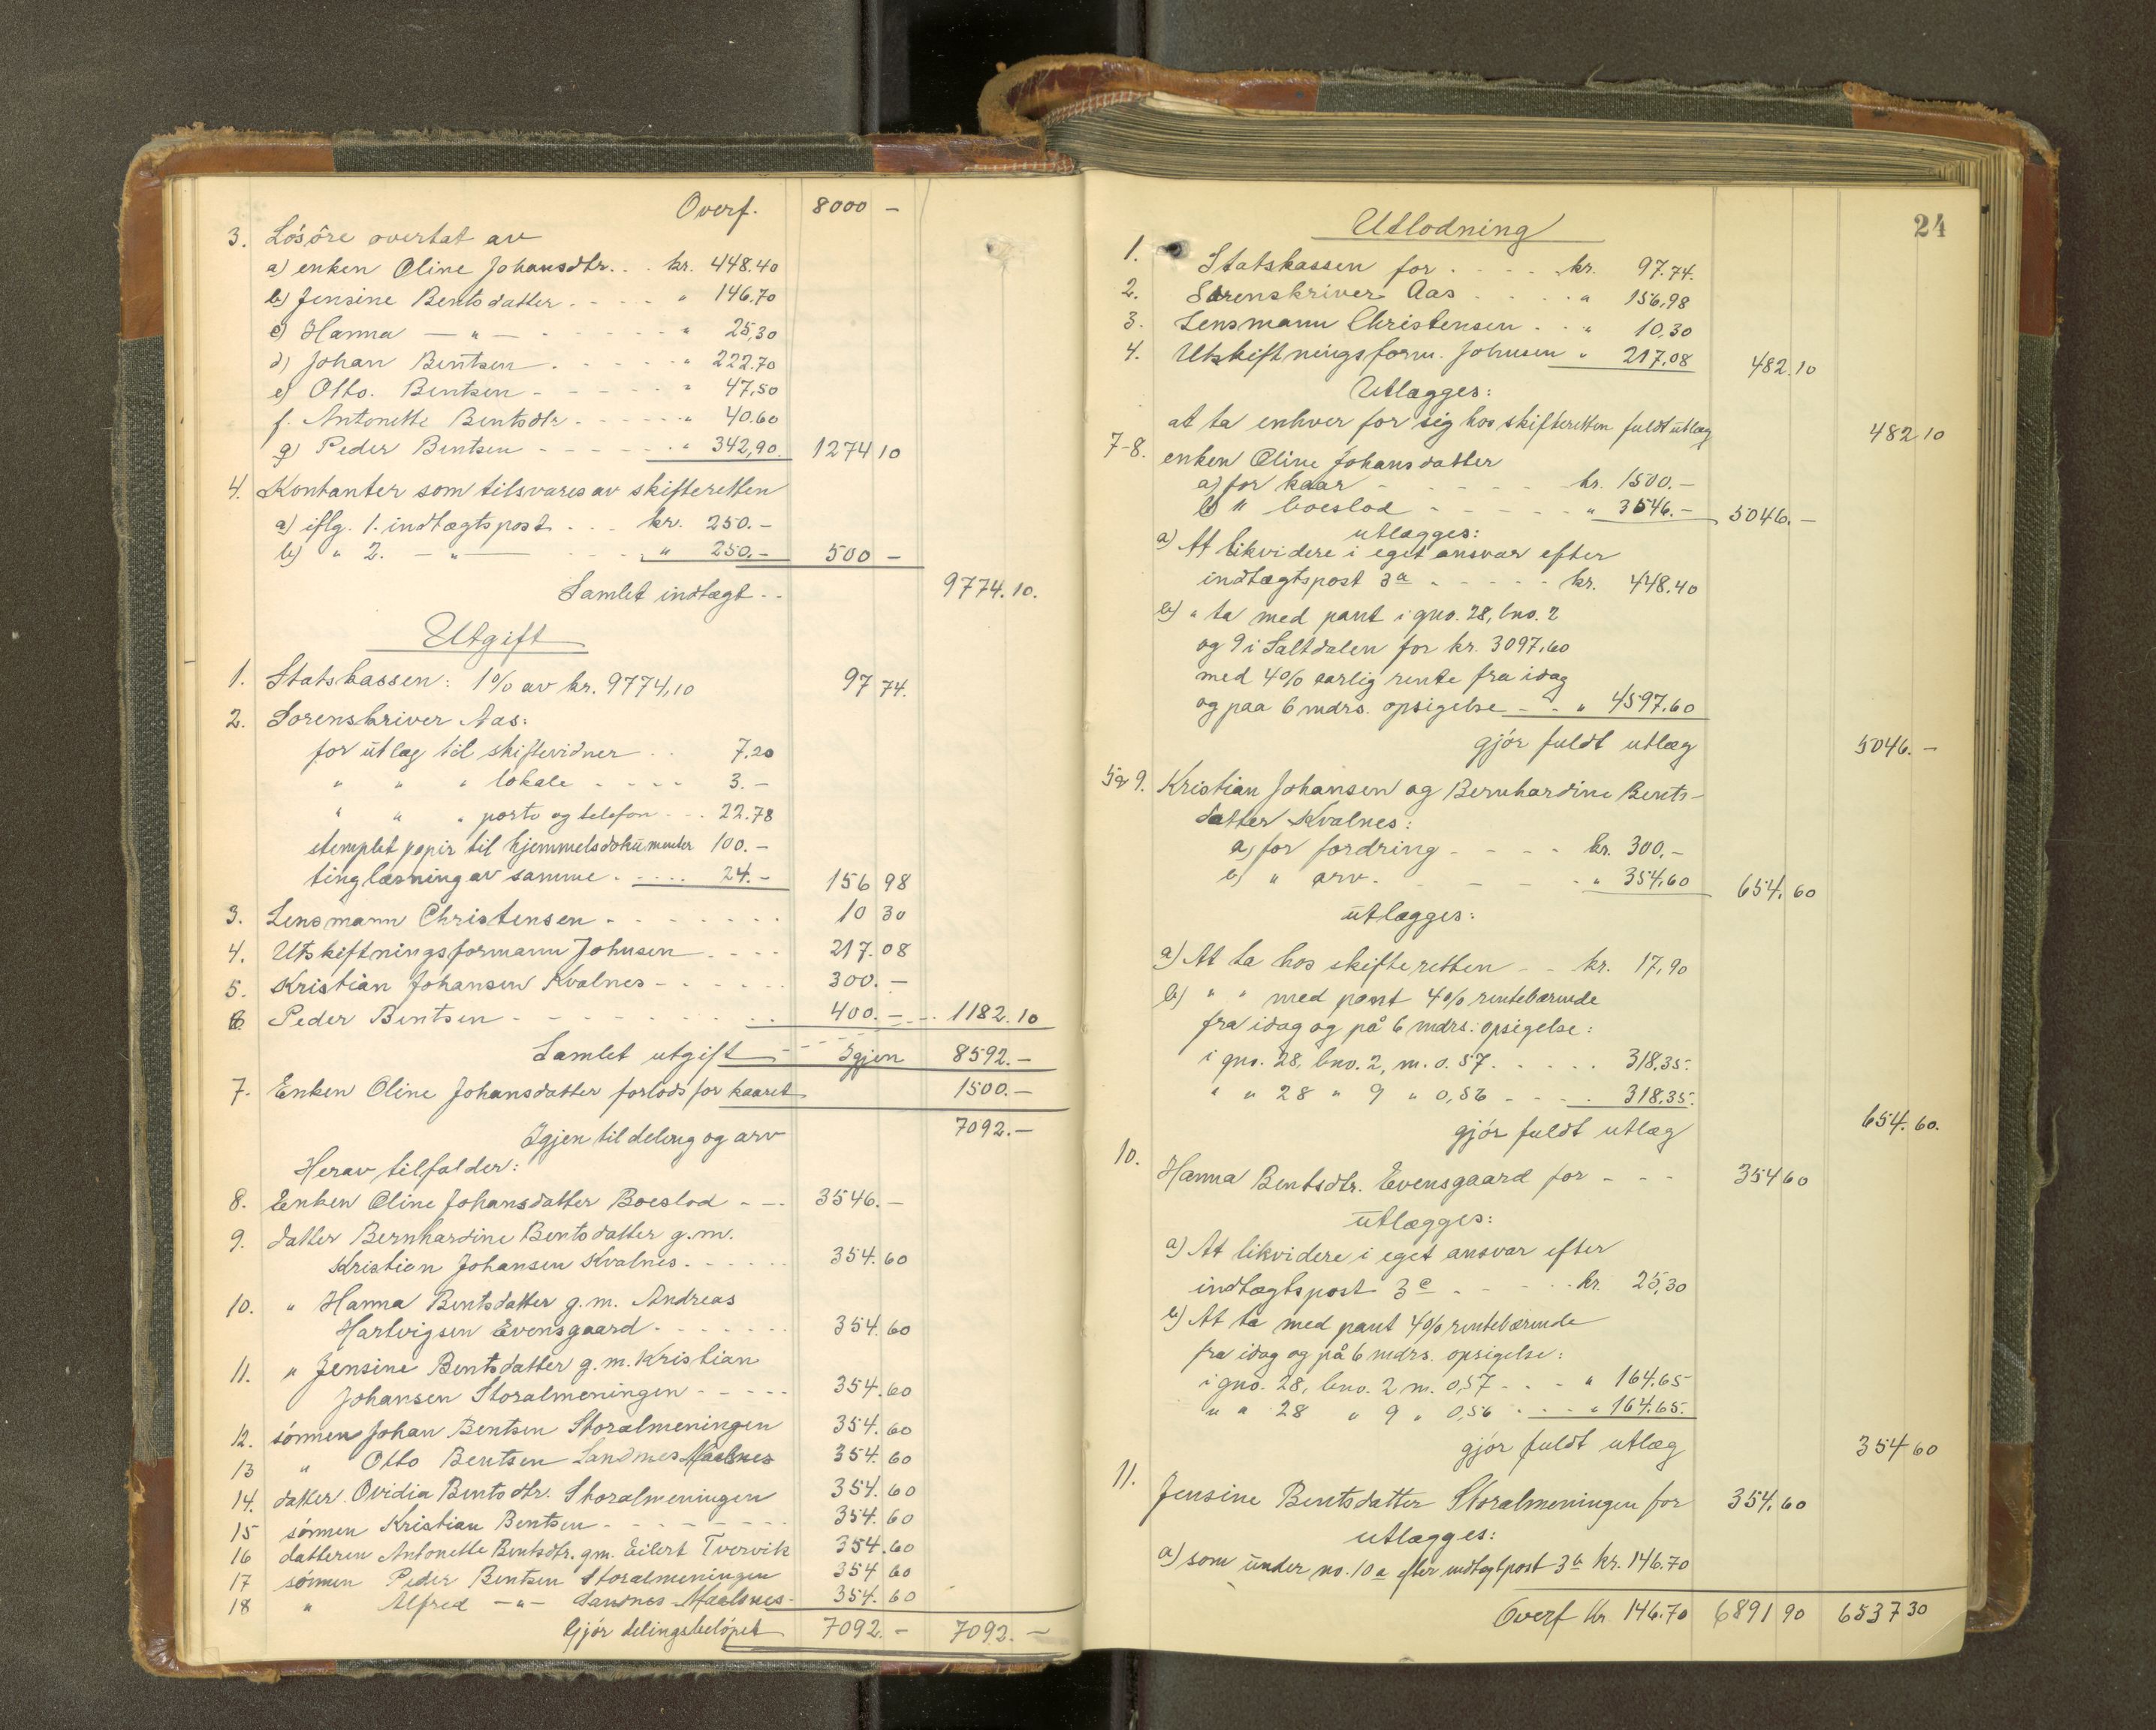 Overf. 8000 -
3. Lösöre overtat av
a) enken Oline Johansdtr. . . kr. 448.40
b) Jensine Bentsdatter . - - - " 146.70
c) Hanna — " — - - - - - " 25,30
d) Johan Bentsen . - - - - " 222.70
e) Otto. Bentsen - - - - - " 47,50
f. Antonette Bentsdtr. - - - - " 40.60
g) Peder Bentsen - - - - - . " 342,90. 1274 10
4. Kontanter som tilsvares av skifteretten
a) iflg. 1. indtægtspost . . . kr. 250.-
b) " 2. — " — - - - " 250.- 500 -
Samlet indtægt . . 9774.10.
Utgift
1. Statskassen: 1% av kr. 9774,10 97 74.
2. Sorenskriver Aas:
for utlæg til skiftevidner . . 7,20
" " " lokale . - - - - 3.-
" " " porto og telefon - - . 22.78
stemplet papir til hjemmelsdokumenter 100.-
tinglæsning av samme . - . . . 24.- 156 98
3. Lensmann Christensen - - - - - - . 10 30
4. Utskiftningsformann Johnsen - - - - 217.08
5. Kristian Johansen Kvalnes - - - - - 300.-
6 Peder Bentsen - - - - - - - - . . 400.- - - . 1182.10
Samlet utgift - - - - Igjen 8592.-
7. Enken Oline Johansdatter forlods for kaaret 1500.-
Igjen til deling og arv 7092.-
Herav tilfalder:
8. Enken Oline Johansdatter Boeslod - - - 3546.-
9. datter Bernhardine Bentsdatter g.m.
Kristian Johansen Kvalnes. - - - - - 354.60
10. " Hanna Bentsdatter g.m. Andreas
Hartvigsen Evensgaard - - - - - - 354.60
11. " Jensine Bentsdatter g.m. Kristian
Johansen Storalmeningen - - - - - 354.60
12. sönnen Johan Bentsen Storalmeningen 354.60
13 " Otto Bentsen Sandnes Maalnes 354.60
14. datter Ovidia Bentsdtr. Storalmeningen 354.60
15 sönnen Kristian Bentsen - - - - - - - 354.60
16 datteren Antonette Bentsdtr. gm. Eilert Tvervik 354.60
17 sönnen Peder Bentsen Storalmeningen 354 60
18 " Alfred — " — Sandnes Maalsnes - 354.60
Gjör delingsbelöpet 7092.- 7092.-
24
Utlodning
1. Statskassen for . - - - . kr. 97.74.
2. Sorenskriver Aas . - - - . " 156,98
3. Lensmann Christensen - . . " 10,30
4. Utskiftningsform. Johnsen " 217,08 482.10
Utlægges:
at ta enhver for sig hos skifteretten fuldt utlæg 482 10
7-8. enken Oline Johansdatter
a) for kaar - - - - - - kr. 1500.-
b) " boeslod - - - - - - " 3546.- 5046.-
utlægges:
a) At likvidere i eget ansvar efter
indtægtspost 3a . - - - - - kr. 448,40
b) " ta med pant i gno. 28, bno. 2
og 9 i Saltdalen for kr. 3097,60
med 4% aarlig rente fra idag
og paa 6 mdrs. opsigelse - - - " 4597.60
gjör fuldt utlæg 5046.-
5 & 9. Kristian Johansen og Bernhardine Bents-
datter Kvalnes:
a) for fordring - - - - - kr. 300,-
b) " arv. - - - - - - " 354,60 654,60
utlægges:
a) At ta hos skifteretten - - - kr. 17,90
b) " " med pant 4% rentebærende
fra idag og på 6 mdrs. opsigelse:
i gno. 28, bno. 2, m. 0.57 . - . . . 318,35.
" " 28 " 9 " 0,56 - - - . 318,35.
gjör fuldt utlæg 654.60.
10. Hanna Bentsdtr. Evensgaard for - - - 354 60
utlægges:
a) At likvidere i eget ansvar efter
indtægtspost 3c . - - - - . kr. 25,30
b) At ta med pant 4% rentebærende
fra idag og på 6 mdrs. opsigelse:
i gno. 28, bno. 2 m. 0,57 - - - " 164,65
" " 28 " 9 " 0,56 . - . " 164.65.
gjör fuldt utlæg 354 60
11. Jensine Bentsdatter Storalmeningen for 354.60
utlægges:
a) som under no. 10a efter indtægtpost 3b kr. 146.70
Overf kr. 146.70 6891 90 6537 30